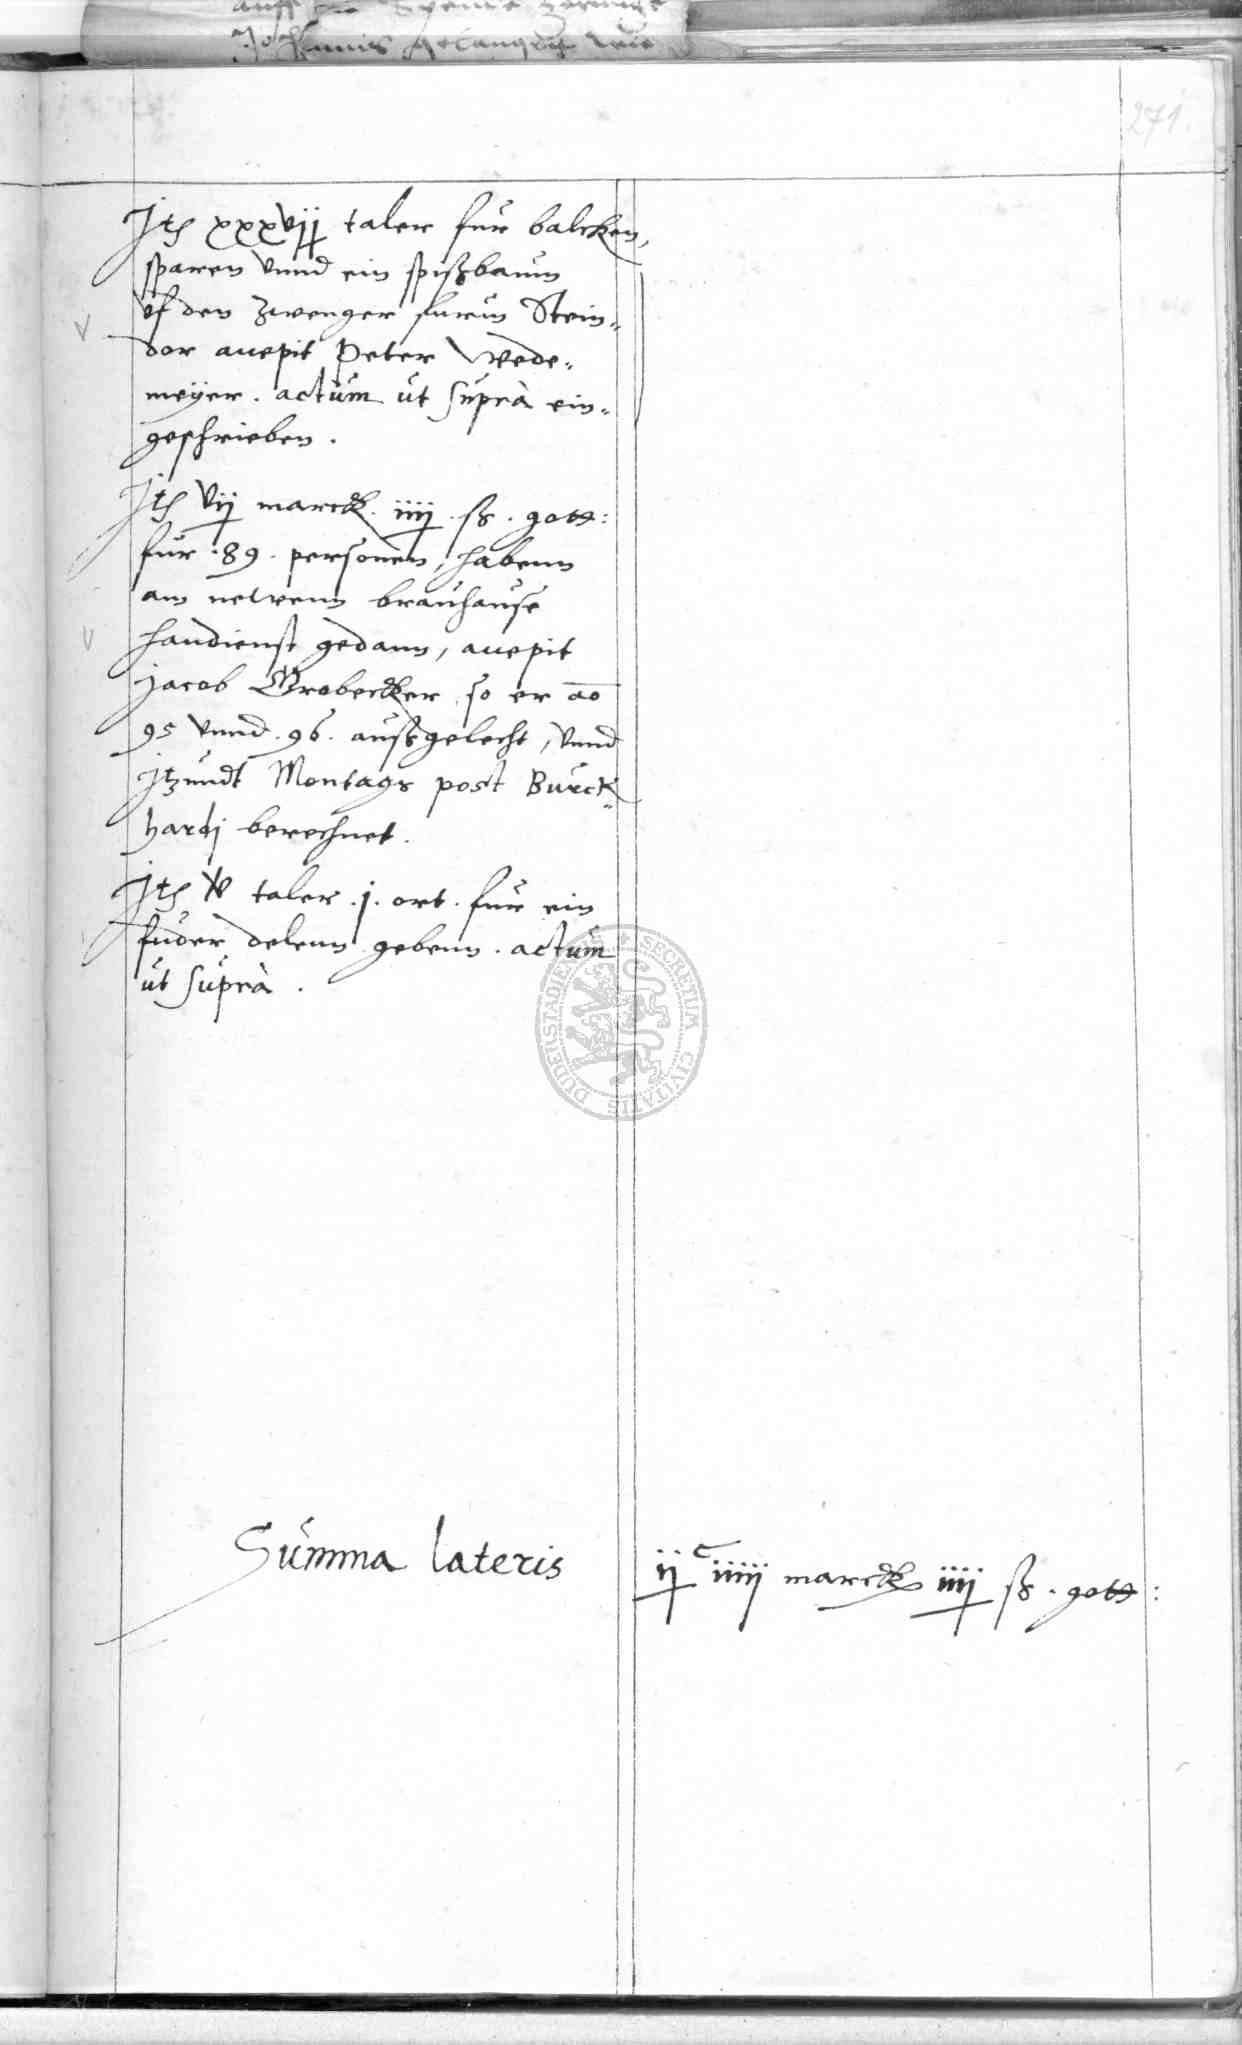 271.
Itē xxxvij taler fur balcken,
sparen vnnd ein spißbaum
vf den zwenger furm Stein=
dor accepit Peter Wede=
meÿer. actum ut suprà ein=
geschrieben.
Itē vij marck. iiij. ß. gott:
fur .89. personen, habenn
am newenn brauhause
handienst gedann, accepit
Jacob Grobecker so er ao
95 vnnd .96. außgelecht, vnnd
itzundt Montags post Burck=
hardj berechnet.
Itē v taler .j. ort. fur ein
fuder delenn gebenn. actum
ut suprà.
SECRETUM CIVITATIS DUDERSTADIENSIS
Summa lateris ij c iiiij marck iiij ß. gott: